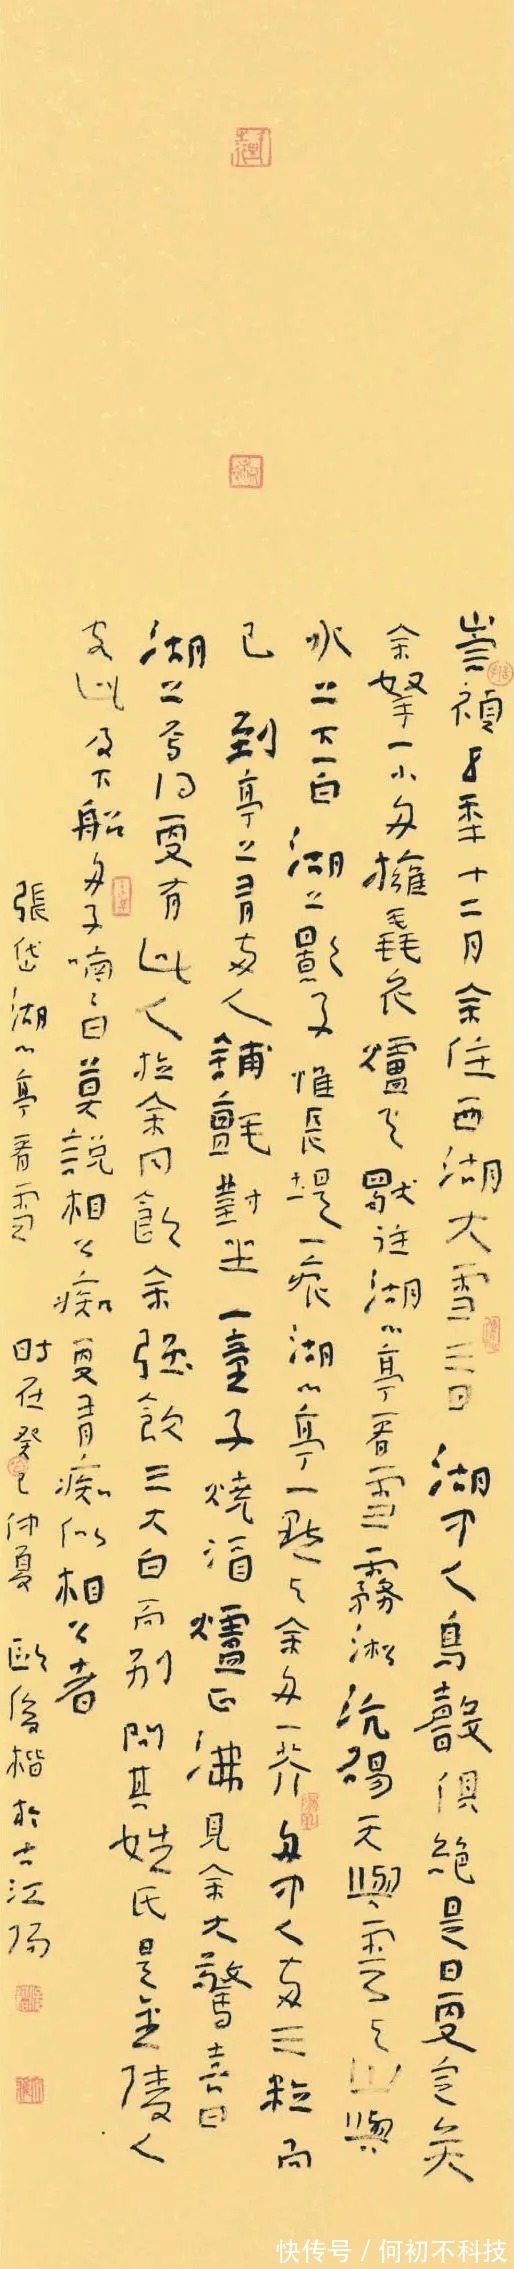 崇禎五年十二月余住西湖大雪三日湖中人鳥聲俱絕是日更定矣
余拏一小舟擁毳衣爐火獨往湖心亭看雪霧淞沆碭天與雲与山與
水上下一白湖上影子惟長堤一痕湖心亭一點与余舟一芥舟中人兩三粒而
已 到亭上有兩人鋪氈對坐一童子燒酒爐正沸見余大驚喜曰
湖上焉得更有此人拉余同飲余強飲三大白而別問其姓氏是金陵人
客此及下船舟子喃喃曰莫說相公痴更有痴似相公者
張岱湖心亭看雪 时在癸巳仲夏 歐 楷於古江陽
快传号/何初不科技